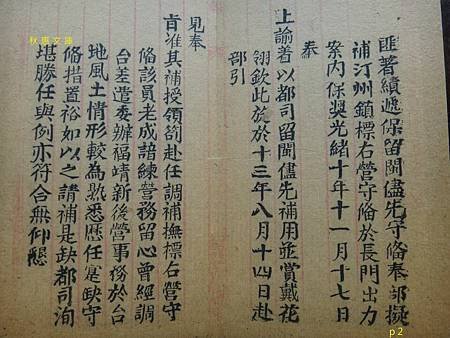 秋惠文庫
匪著績遞保留閩儘先守俻奉部擬
補汀州鎮標右營守俻於長門出力
案内保奨光緒十年十一月十七日
奉
上諭着以都司留閩儘先補用並賞戴花
翎欽此於於十三年八月十四日赴
部引
見奉
旨准其補授領箚赴任調補撫標右營守
俻該員老成諳練營務留心曾經調
台差遣委辦福靖新後營事務於台
地風土情形較為熟悉歷任寔缺守
俻措置裕如以之請補是缺都司洵
堪勝任與例亦符合無仰懇
p2